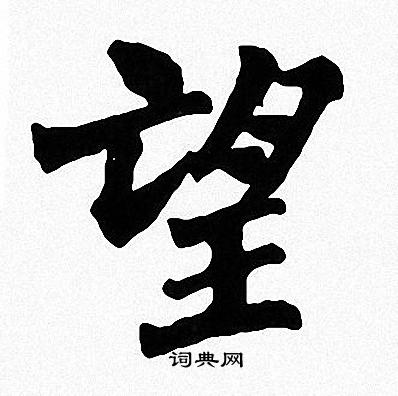 望
词典网